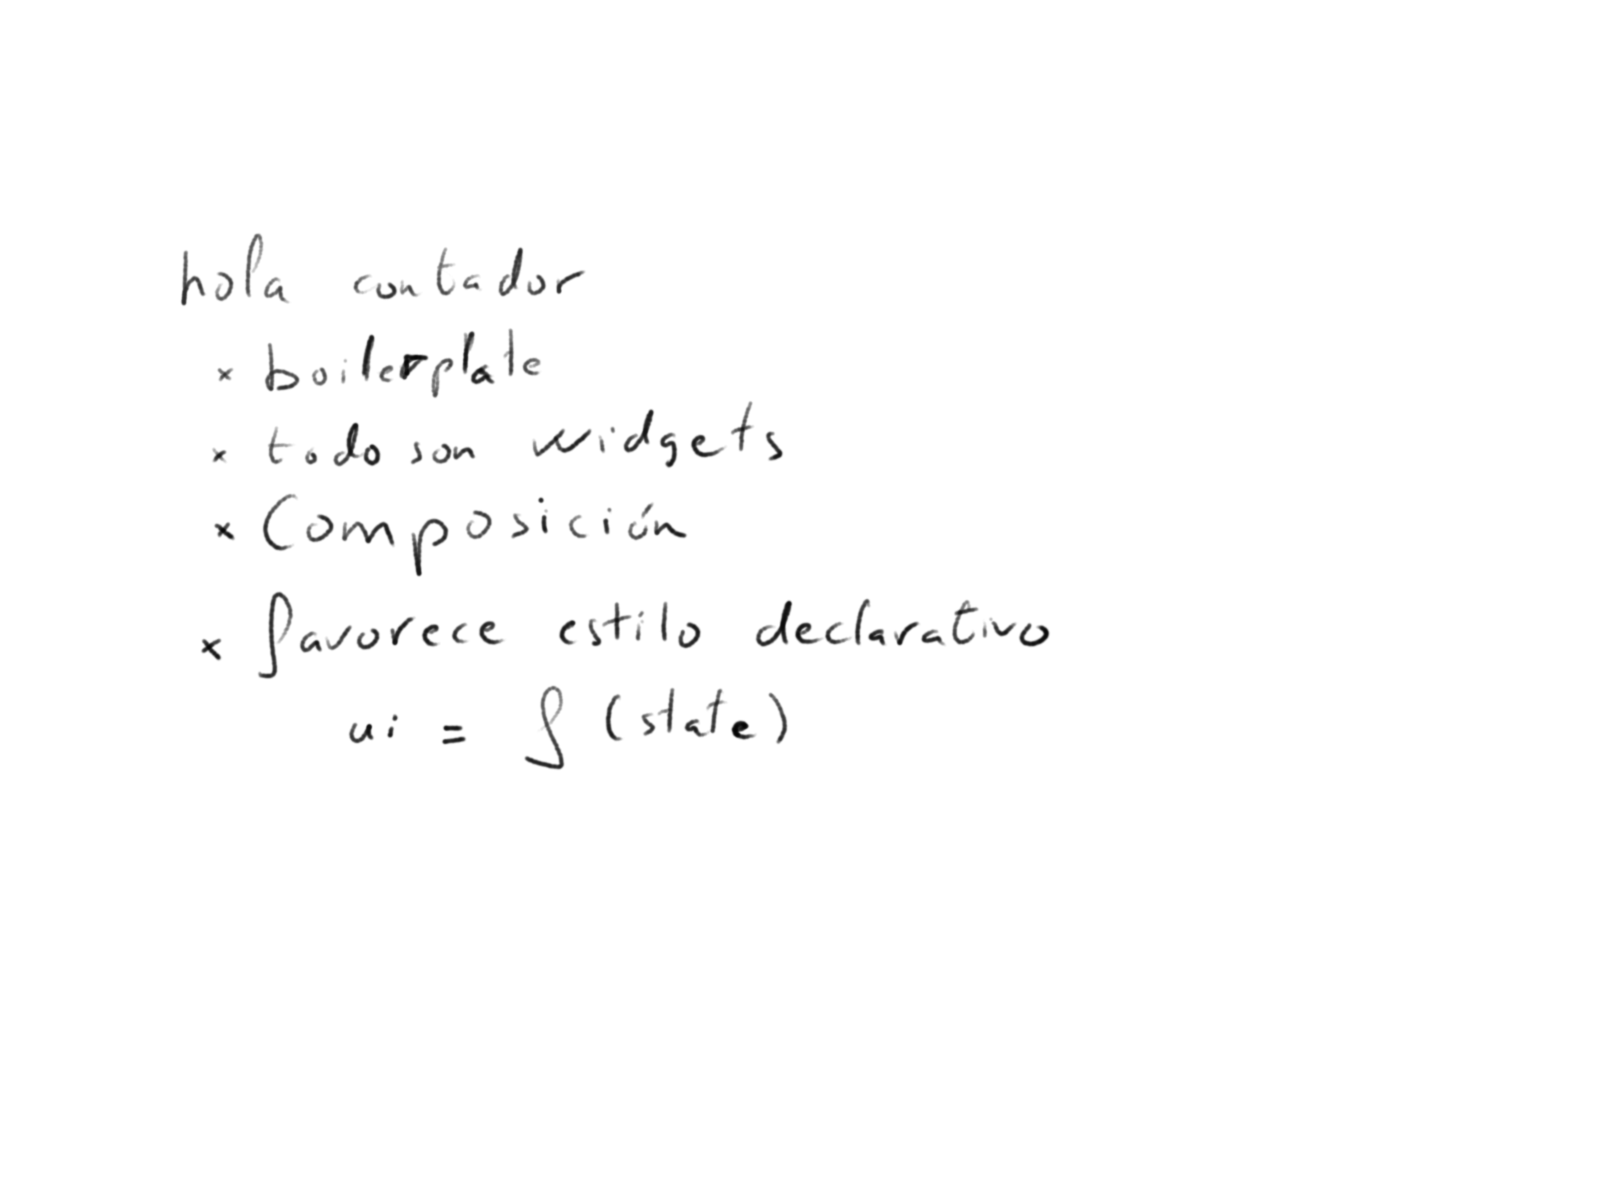 hola contador
* boilerplate
* todo son widgets
* Composición
* favorece estilo declarativo
ui = f (state)